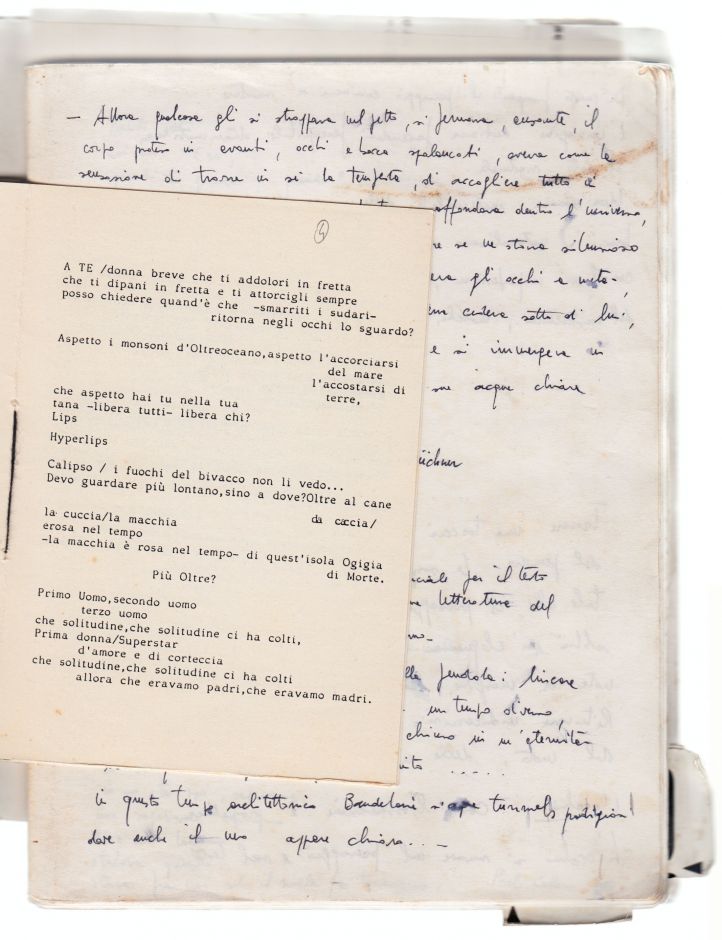 — Allora qualcosa gli si strappava nel petto, si fermava, ansante, il
corpo proteso in avanti, occhi e bocca spalancati, aveva come la
sensazione di trarre in sé la tempesta, di accogliere tutto in
affondava dentro l'universo,
se ne stava silenzioso
gli occhi e
sotto di lui,
e si immergeva in
sue acque chiare
üchner
per il testo
letteratura del
un tempo diverso,
in un'eternità
in questo architettonico Baudelaire tunnels prodigiosi
dove anche il nero appare chiaro... —
4
A TE /donna breve che ti addolori in fretta
che ti dipani in fretta e ti attorcigli sempre
posso chiedere quand'è che -smarriti i sudari-
ritorna negli occhi lo sguardo?
Aspetto i monsoni d'Oltreoceano,aspetto l'accorciarsi
del mare
l'accostarsi di
terre,
che aspetto hai tu nella tua
tana -libera tutti- libera chi?
Lips
Hyperlips
Calipso / i fuochi del bivacco non li vedo...
Devo guardare più lontano,sino a dove?Oltre al cane
da caccia/
la cuccia/la macchia
erosa nel tempo
-la macchia è rosa nel tempo- di quest'isola Ogigia
di Morte.
Più Oltre?
Primo Uomo,secondo uomo
terzo uomo
che solitudine,che solitudine ci ha colti,
Prima donna/Superstar
d'amore e di corteccia
che solitudine,che solitudine ci ha colti
allora che eravamo padri,che eravamo madri.